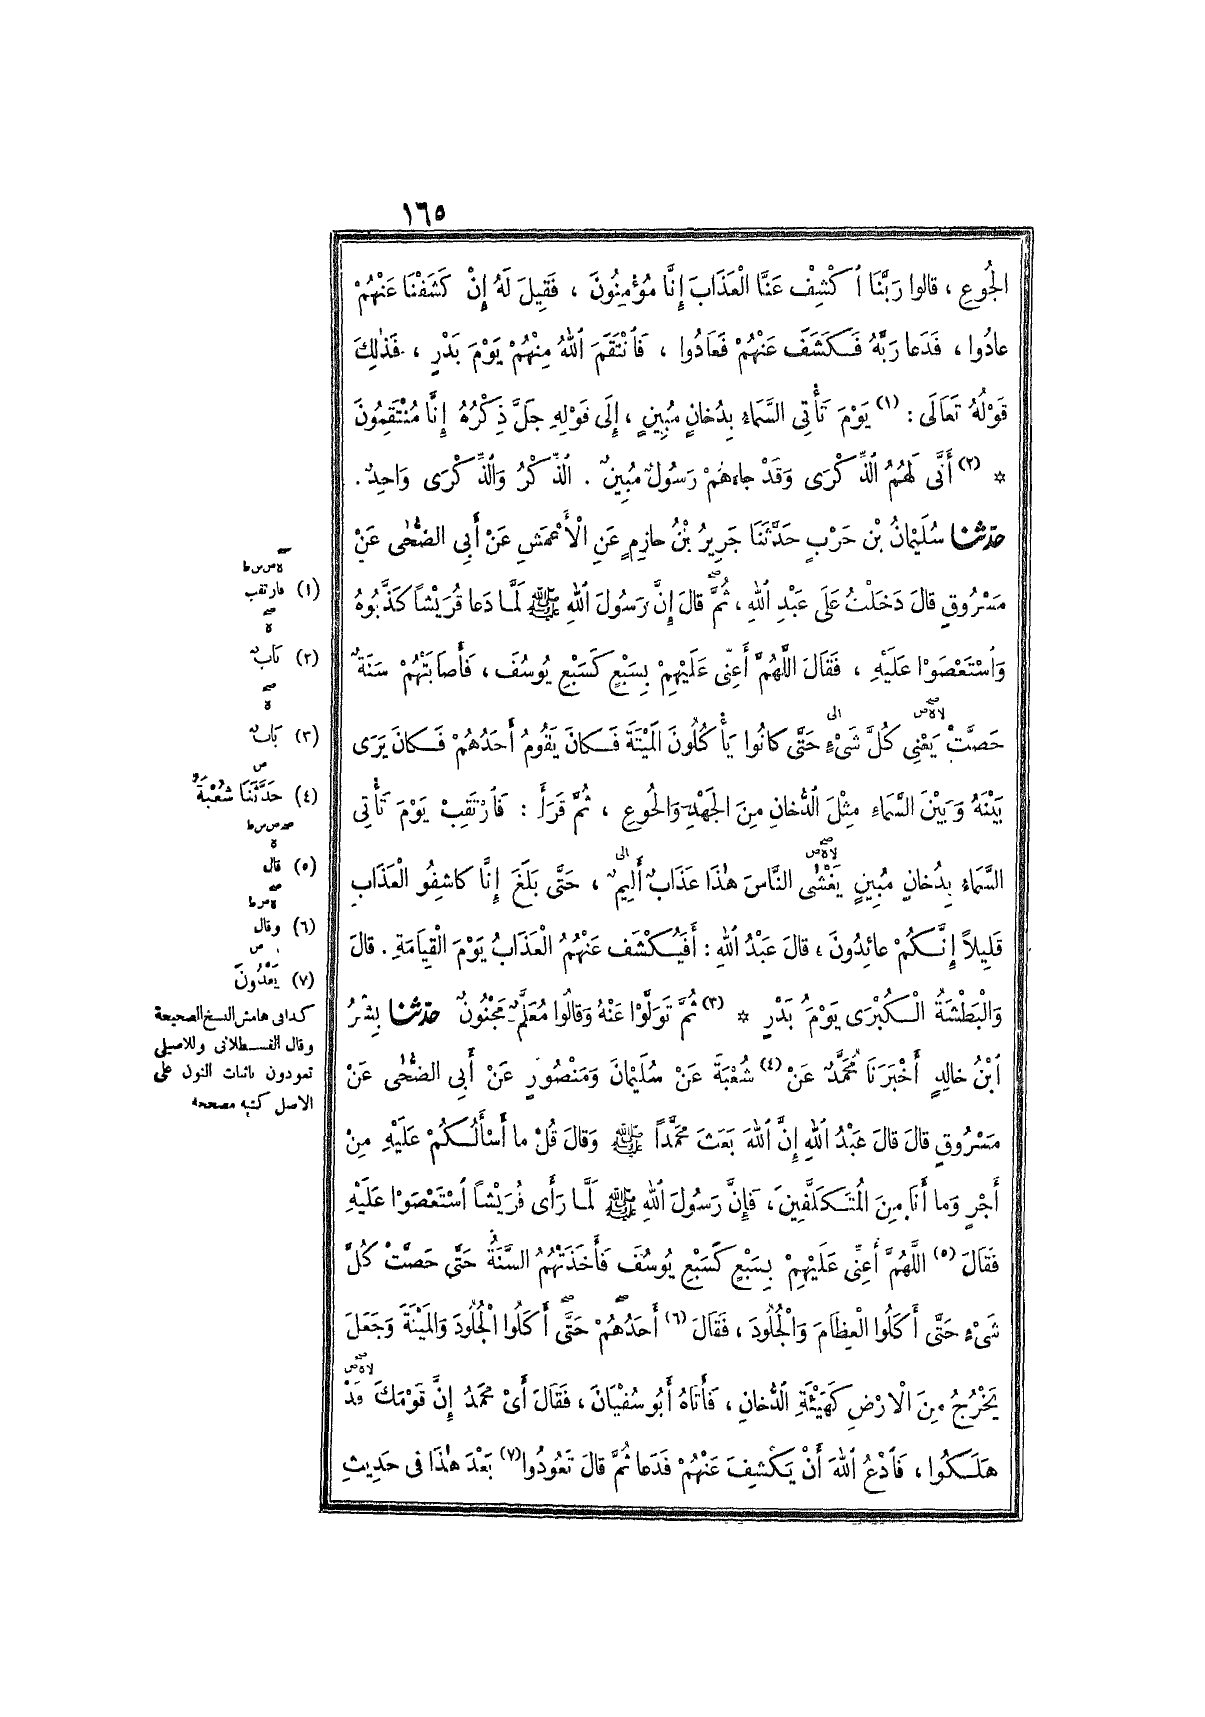 ١٦٥
الْجُوعِ ، قالوا رَبَّنَا ٱكْشِفْ عَنَّا الْعَذَابَ إِنَّا مُؤْمِنُونَ ، فَقِيلَ لَهُ إِنْ كَشَفْنَا عَنْهُمْ
عادُوا ، فَدَعا رَبَّهُ فَكَشَفَ عَنْهُمْ فَعَادُوا ، فَٱنْتَقَمَ ٱللهُ مِنْهُمْ يَوْمَ بَدْرٍ ، فَذٰلِكَ
قَوْلُهُ تَعَالَى : (١) يَوْمَ تَأْتِى السَّمَاءُ بِدُخانٍ مُبِينٍ ، إِلَى قَوْلِهِ جَلَّ ذِكْرُهُ إِنَّا مُنْتَقِمُونَ
* (٢) أَنَّى لَهُمُ الذِّكْرَى وَقَدْ جاءَهُمْ رَسُولٌ مُبِينٌ . الذِّكْرُ وَالذِّكْرَى وَاحِدٌ .
حدثنا سُلَيْمَانُ بْنُ حَرْبٍ حَدَّثَنَا جَرِيرُ بْنُ حازِمٍ عَنِ الْأَعْمَشِ عَنْ أَبِى الضُّحٰى عَنْ
مَسْرُوقٍ قالَ دَخَلْتُ عَلَى عَبْدِ ٱللهِ ، ثُمَّ قالَ إِنَّ رَسُولَ ٱللهِ ﷺ لَمَّا دَعا قُرَيْشاً كَذَّبُوهُ
وَٱسْتَعْصَوْا عَلَيْهِ ، فَقَالَ اللَّهُمَّ أَعِنِّى عَلَيْهِمْ بِسَبْعٍ كَسَبْعِ يُوسُفَ ، فَأَصَابَتْهُمْ سَنَةٌ
حَصَّتْ يَعْنِى كُلَّ شَىْءٍ حَتَّى كانُوا يَأْكُلُونَ الْمَيْتَةَ فَكانَ يَقُومُ أَحَدُهُمْ فَكانَ يَرَى
بَيْنَهُ وَبَيْنَ السَّمَاءِ مِثْلَ الدُّخانِ مِنَ الجَهْدِ وَالْجُوعِ ، ثُمَّ قَرَأَ : فَٱرْتَقِبْ يَوْمَ تَأْتِى
السَّمَاءُ بِدُخانٍ مُبِينٍ يَغْشٰى النَّاسَ هٰذَا عَذَابٌ أَلِيمٌ ، حَتَّى بَلَغَ إِنَّا كاشِفُو الْعَذَابِ
قَلِيلاً إِنَّكُمْ عائِدُونَ ، قالَ عَبْدُ ٱللهِ : أَفَيُكْشَفُ عَنْهُمُ الْعَذَابُ يَوْمَ الْقِيَامَةِ . قالَ
وَالْبَطْشَةُ الْكُبْرَى يَوْمَ بَدْرٍ * (٣) ثُمَّ تَوَلَّوْا عَنْهُ وَقالُوا مُعَلَّمٌ مَجْنُونٌ حدثنا بِشْرُ
ٱبْنُ خالِدٍ أَخْبَرَنَا مُحَمَّدٌ عَنْ (٤) شُعْبَةَ عَنْ سُلَيْمَانَ وَمَنْصُورٍ عَنْ أَبِى الضُّحٰى عَنْ
مَسْرُوقٍ قالَ قالَ عَبْدُ ٱللهِ إِنَّ ٱللهَ بَعَثَ مُحَمَّداً ﷺ وَقالَ قُلْ ما أَسْأَلُكُمْ عَلَيْهِ مِنْ
أَجْرٍ وَما أَنَا مِنَ الْمُتَكَلِّفِينَ ، فَإِنَّ رَسُولَ ٱللهِ ﷺ لَمَّا رَأَى قُرَيْشاً ٱسْتَعْصَوْا عَلَيْهِ
فَقَالَ (٥) اللَّهُمَّ أَعِنِّى عَلَيْهِمْ بِسَبْعٍ كَسَبْعِ يُوسُفَ فَأَخَذَتْهُمُ السَّنَةُ حَتَّى حَصَّتْ كُلَّ
شَىْءٍ حَتَّى أَكَلُوا الْعِظَامَ وَالْجُلُودَ ، فَقَالَ (٦) أَحَدُهُمْ حَتَّى أَكَلُوا الْجُلُودَ وَالمَيْتَةَ وَجَعَلَ
يَخْرُجُ مِنَ الْأَرْضِ كَهَيْئَةِ الدُّخانِ ، فَأَتَاهُ أَبُو سُفْيَانَ ، فَقَالَ أَىْ مُحَمَّدُ إِنَّ قَوْمَكَ قَدْ
هَلَكُوا ، فَٱدْعُ ٱللهَ أَنْ يَكْشِفَ عَنْهُمْ فَدَعا ثُمَّ قالَ تَعُودُوا (٧) بَعْدَ هٰذَا فى حَدِيثِ
(١) فارتقب
(٢) بَابٌ
(٣) بَابٌ
(٤) حَدَّثَنَا شُعْبَةُ
(٥) قال
(٦) وقال
(٧) يَعُدُونَ
كذا فى هامش النسخ الصحيحة
وقال القسطلانى وللاصيلى
تعودون باثبات النون على
الاصل كتبه مصححه